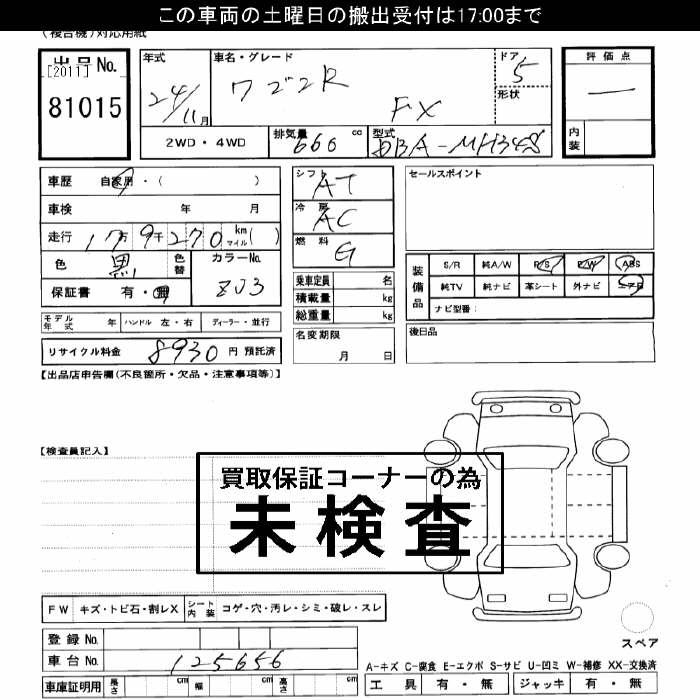 この車両の土曜日の搬出受付は17:00まで
(複合機)対応用紙
出品No.
[2011]
81015
年式
24/11月
車名・グレード
ワゴンR
FX
ドア
5
形状
2WD・4WD
排気量
660 cc
型式
DBA-MH34S
評価点
―
内装
車歴 自家用・( )
車検 年 月
走行 17万9千270 km マイル( )
色 黒 色替
カラーNo.
ZJ3
保証書 有・無
モデル年式 年 ハンドル 左・右 ディーラー・並行
リサイクル料金 8930 円 預託済
シフト AT
冷房 AC
燃料 G
乗車定員 名
積載量 kg
総重量 kg
名変期限
月 日
セールスポイント
装備品
S/R 純A/W P/S P/W ABS
純TV 純ナビ 革シート 外ナビ エアB
ナビ型番:
後日品
【出品店申告欄(不良箇所・欠品・注意事項等)】
【検査員記入】
買取保証コーナーの為
未検査
FW キズ・トビ石・割レX シート内装 コゲ・穴・汚レ・シミ・破レ・スレ
登録No.
車台No. 125656
車庫証明用 長さ cm 幅 cm 高さ cm
スペア
A-キズ C-腐食 E-エクボ S-サビ U-凹ミ W-補修 XX-交換済
工具 有・無 ジャッキ 有・無